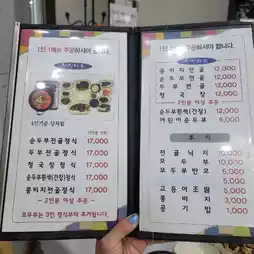 1인 1메뉴 주문하셔야 합니다.
4인기준 상차림
순두부전골정식 17,000
두부전골정식 17,000
청국장정식 17,000
순두부흰색(간장)정식 17,000
콩비지전골정식 17,000
- 2인분 이상 주문 -
모두부는 3인 정식부터 추가됩니다.
1인 주문하셔야 합니다.
콩비지전골 12,000
순두부전골 12,000
두부전골 12,000
청국장 12,000
2인분 이상 주문
순두부흰색(간장) 12,000
어린이순두부 6,000
추가
전골낙지 10,000
모두부 10,000
모두부반모 6,000
5,000
고등어조림 5,000
콩비지 3,000
공기밥 1,000